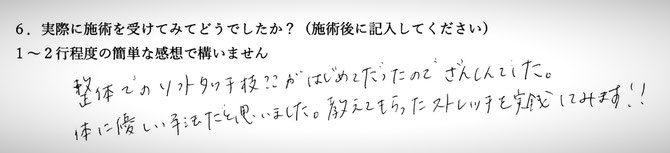 6．実際に施術を受けてみてどうでしたか？（施術後に記入してください）
1～2行程度の簡単な感想で構いません
整体でのソフトタッチ技??がはじめてだったのでざんしんでした。
体に優しい手法だと思いました。教えてもらったストレッチを実践してみます!!